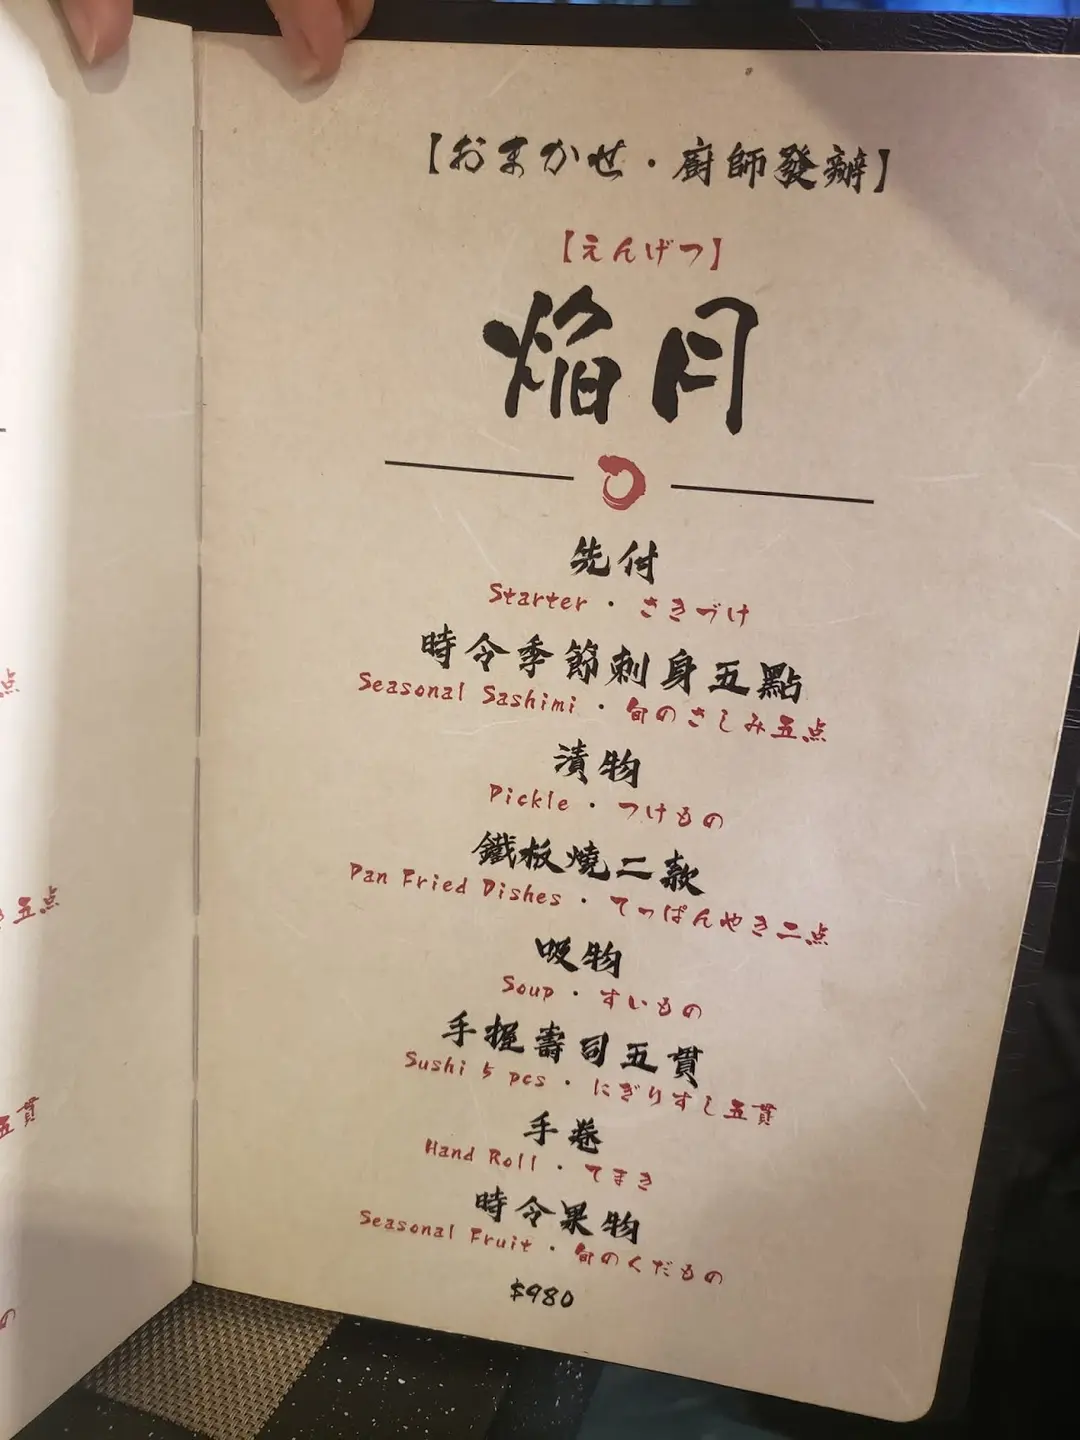 【おまかせ・廚師發辦】
【えんげつ】
焔月
先付
Starter・さきづけ
時令季節刺身五點
Seasonal Sashimi・旬のさしみ五点
漬物
Pickle・つけもの
鐵板燒二款
Pan Fried Dishes・てっぱんやき二点
吸物
Soup・すいもの
手握壽司五貫
Sushi 5 pcs・にぎりすし五貫
手卷
Hand Roll・てまき
時令果物
Seasonal Fruit・旬のくだもの
$980
点
き五点
五貫
の